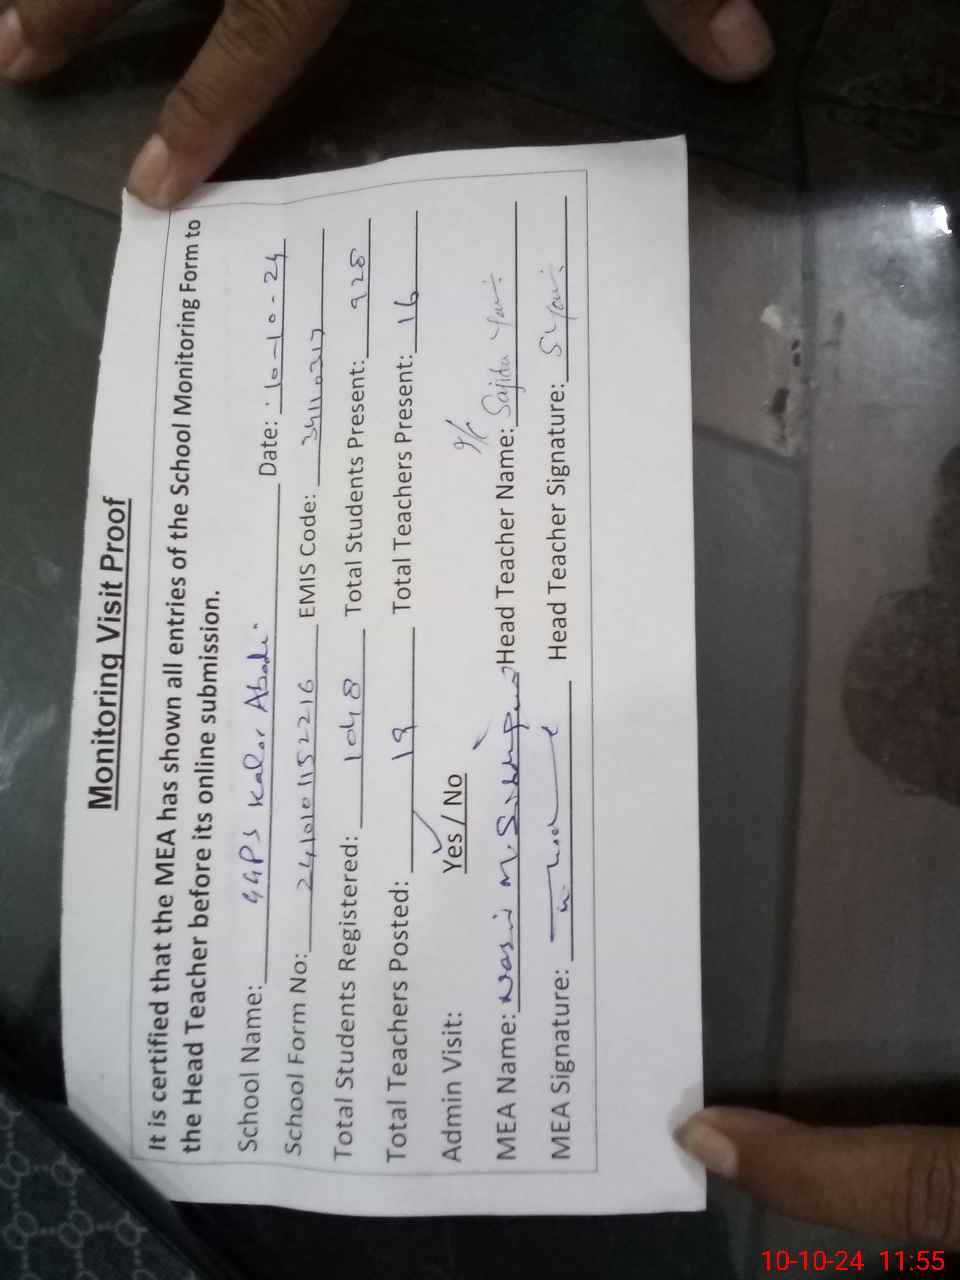 Monitoring Visit Proof
It is certified that the MEA has shown all entries of the School Monitoring Form to
the Head Teacher before its online submission.
School Name: GGPS Kalar Abadi Date: 10-10-24
School Form No: 2410101152216 EMIS Code: 34110317
Total Students Registered: 1048 Total Students Present: 928
Total Teachers Posted: 19 Total Teachers Present: 16
Admin Visit: Yes / No
MEA Name: Head Teacher Name: Sajida
MEA Signature: Head Teacher Signature:
10-10-24 11:55